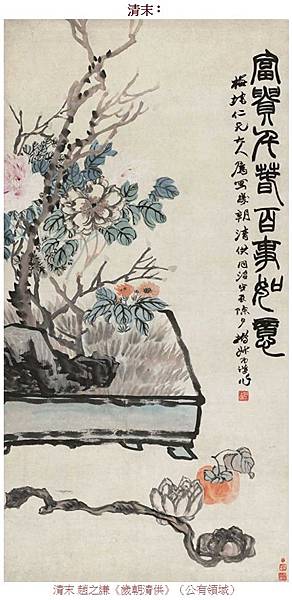 清末：
富貴 春百事如意
仁兄大人屬寫歲朝清供同治 除夕撝叔
清末.趙之謙《歲朝清供》（公有領域）